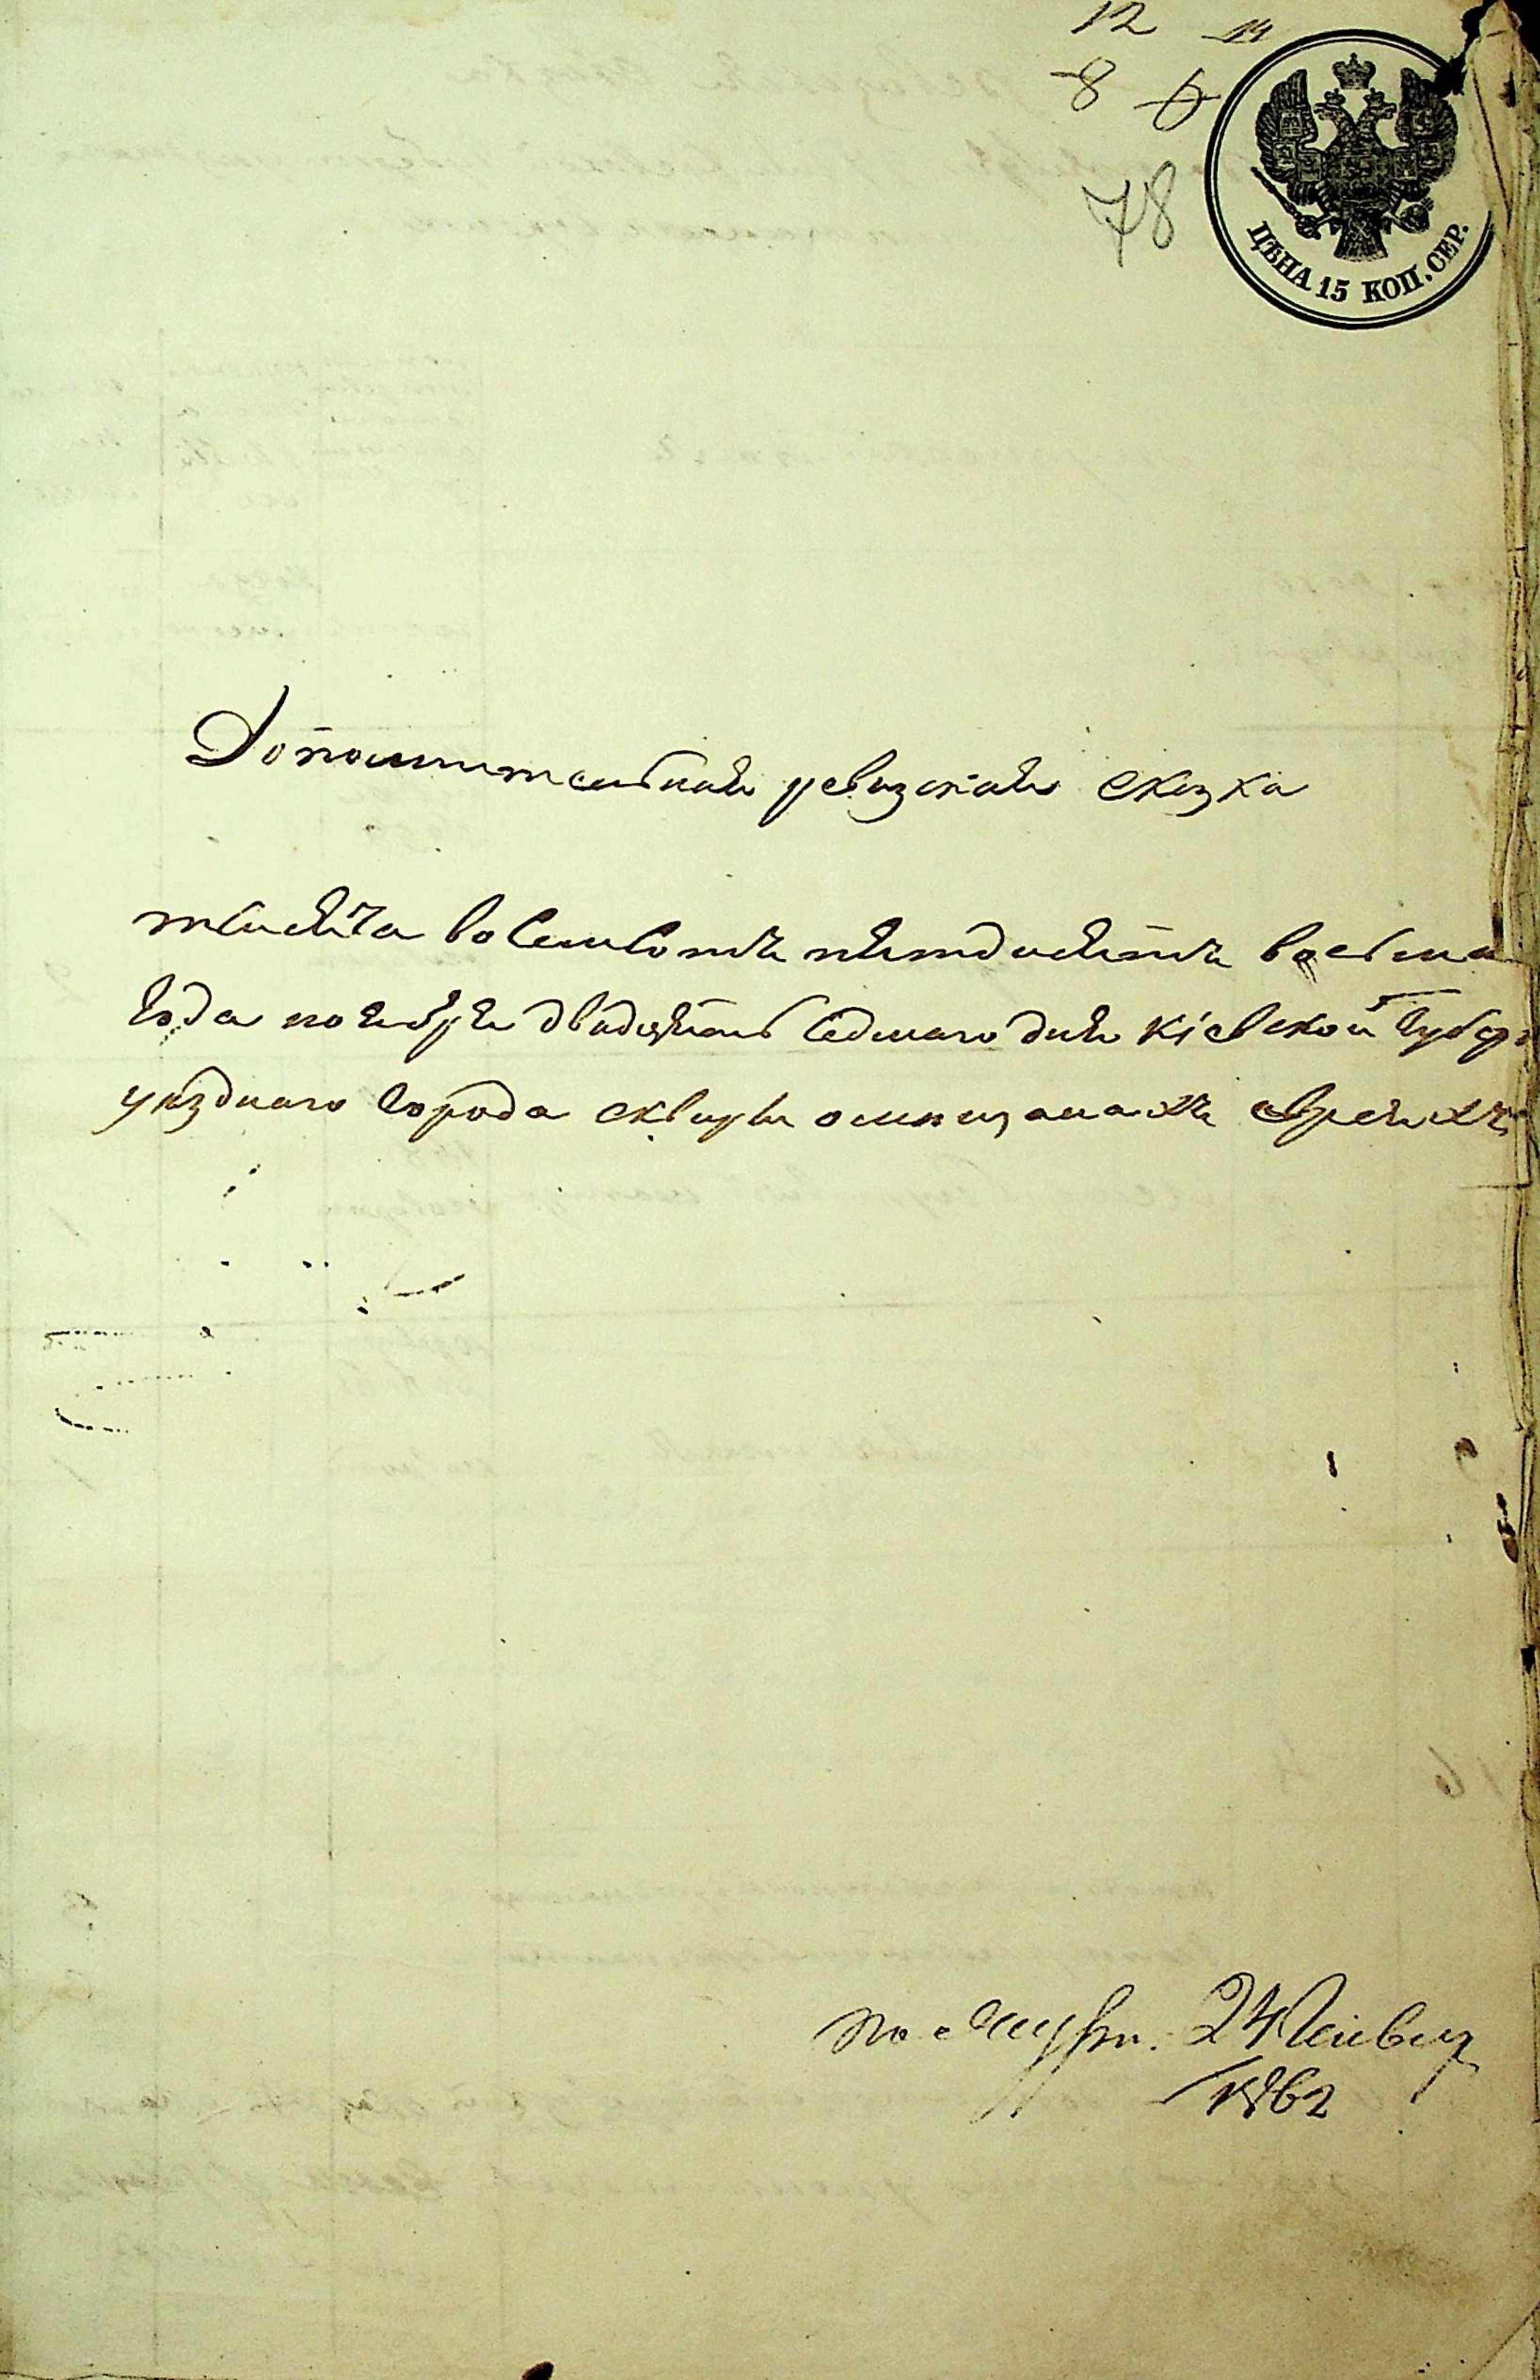 12 14
8 6
78
ЦѢНА 15 КОП. СЕР.
Дополнительная ревизская сказка
тысяча восемьсотъ пятдесятъ восьма
года ноября двадцять седмаго дня Кіевской Губер
уѣзднаго города Сквиры о мѣщанахъ евреяхъ
24 Генвар
1862